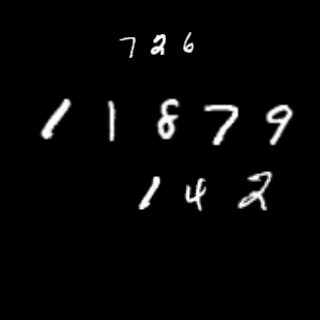 7 2 6
1 1 8 7 9
1 4 2